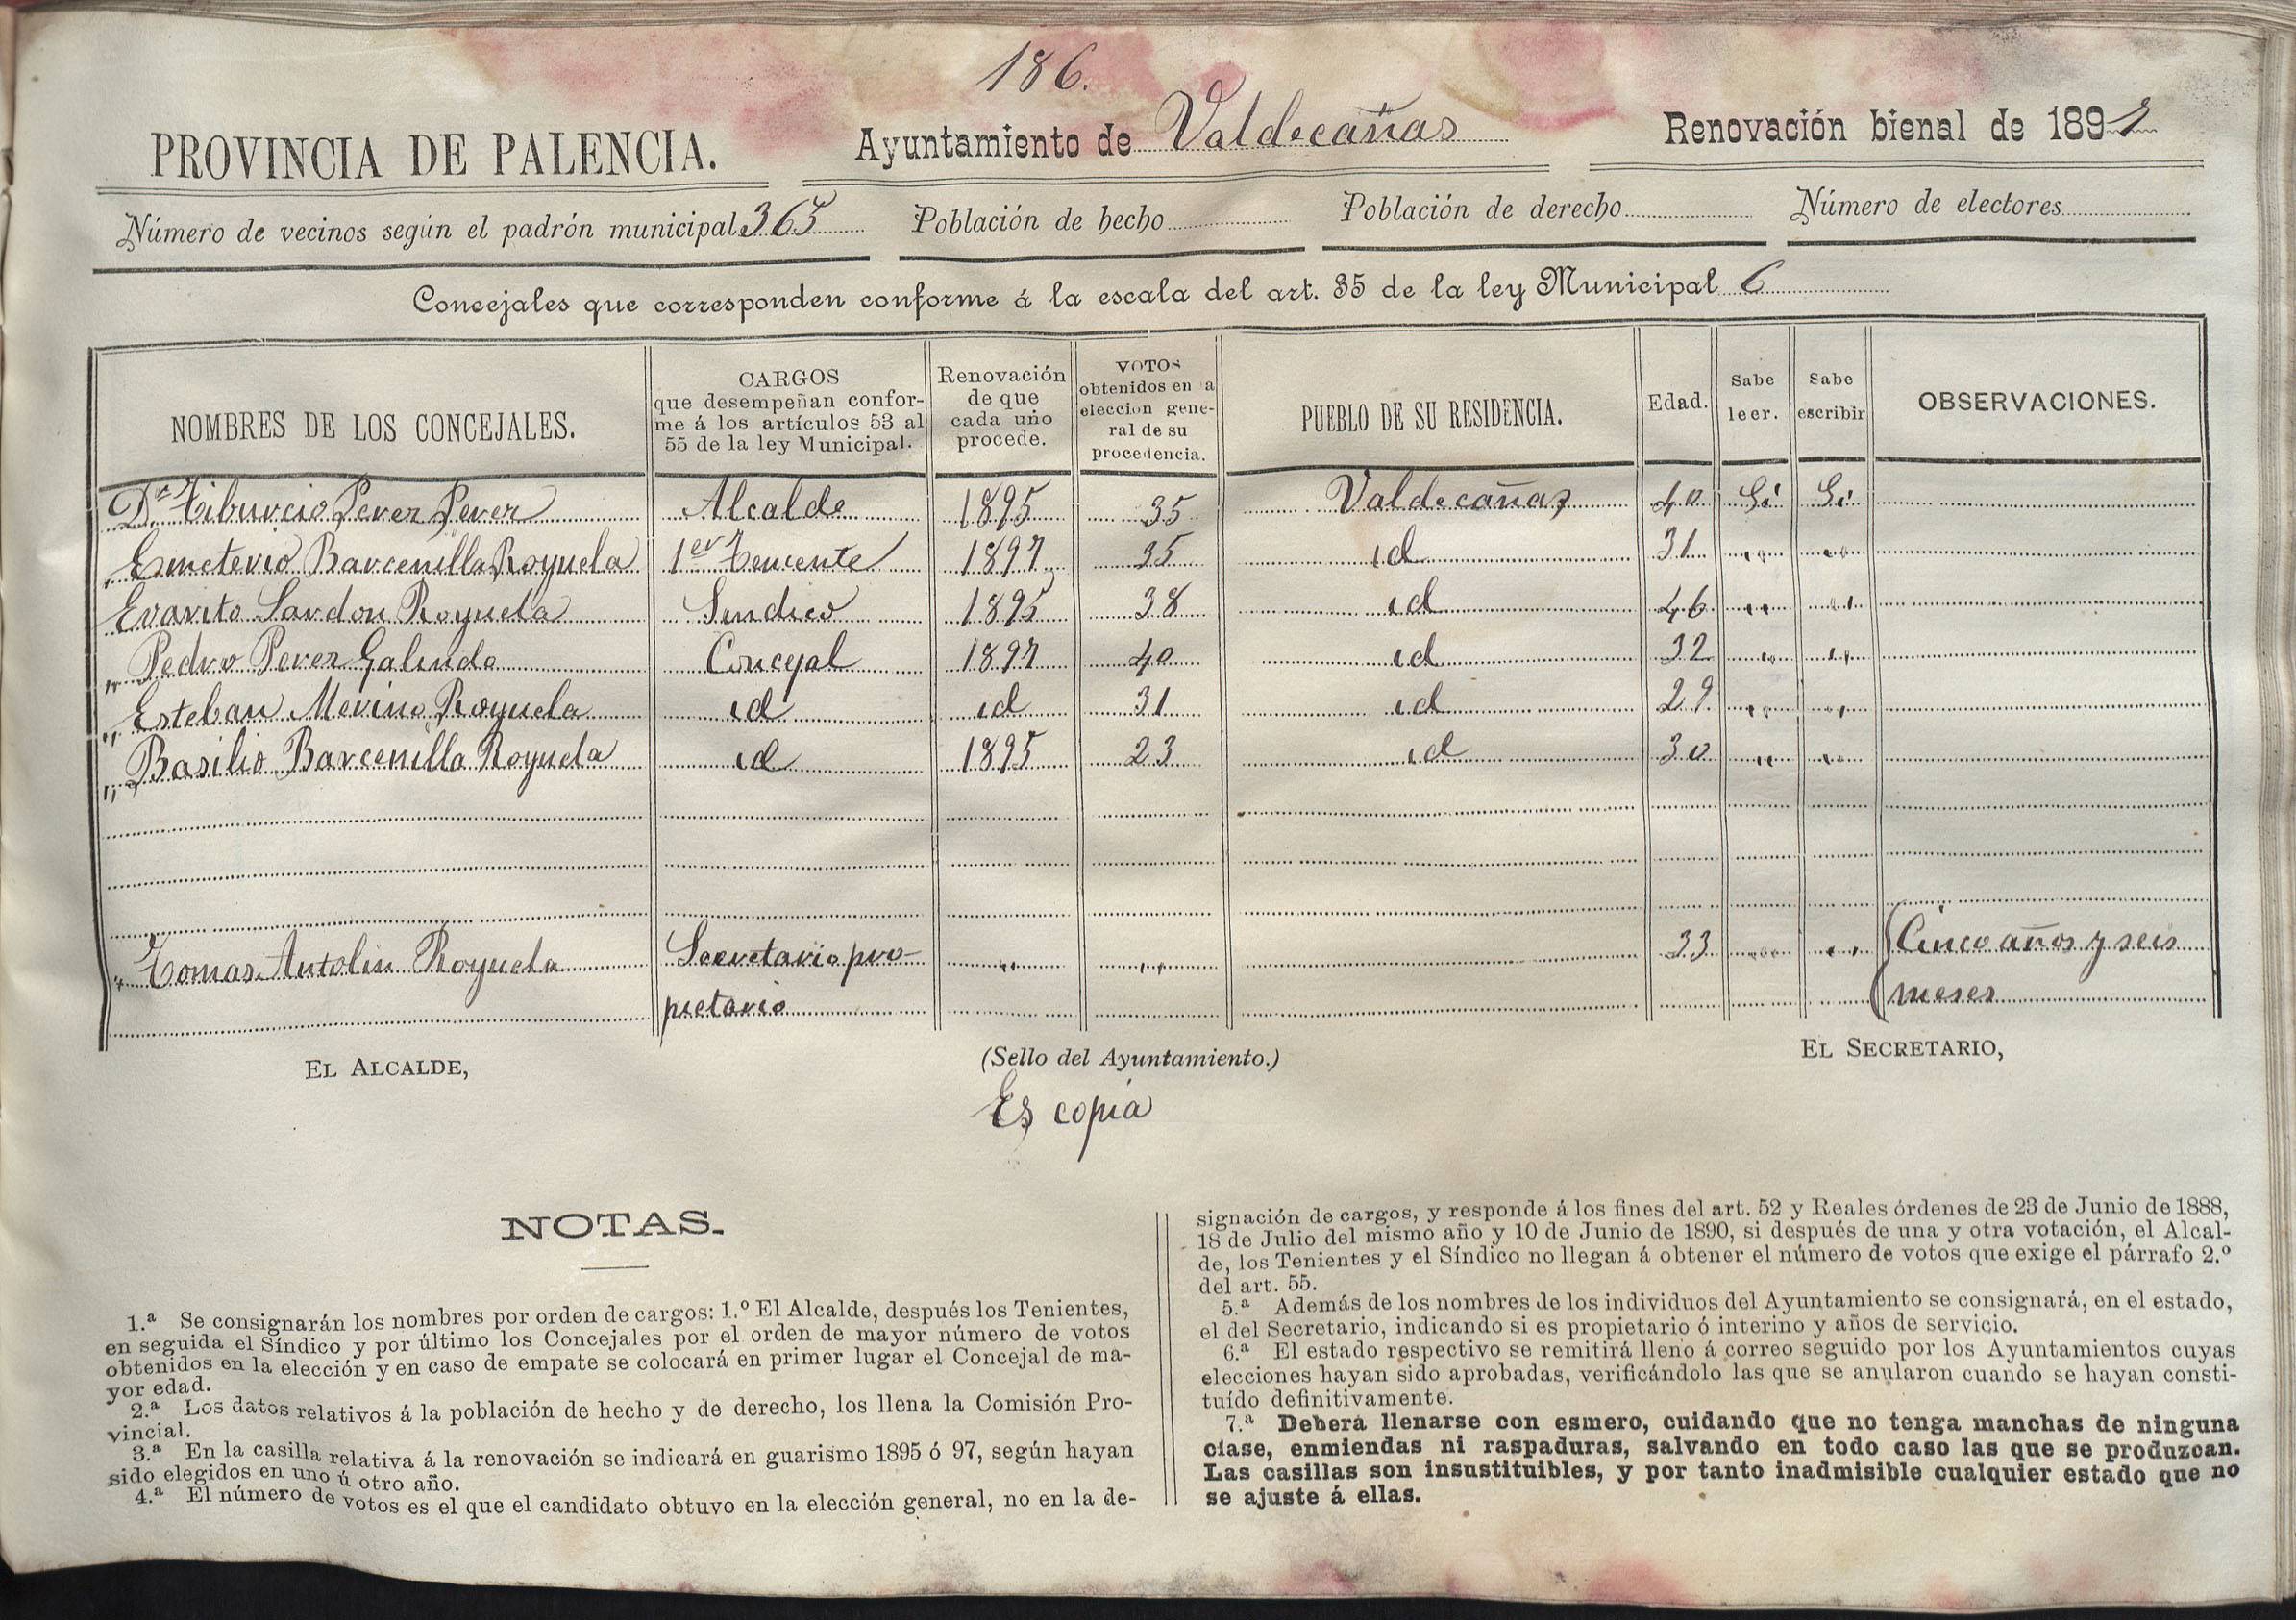 186.
PROVINCIA DE PALENCIA. Ayuntamiento de Valdecañas Renovación bienal de 1897
Número de vecinos según el padrón municipal 365 Población de hecho Población de derecho Número de electores
Concejales que corresponden conforme á la escala del art. 35 de la ley Municipal 6
NOMBRES DE LOS CONCEJALES. CARGOS que desempeñan conforme á los artículos 53 al 55 de la ley Municipal. Renovación de que cada uno procede. VOTOS obtenidos en a elección general de su procedencia. PUEBLO DE SU RESIDENCIA. Edad. Sabe leer. Sabe escribir OBSERVACIONES.
Dn. Tiburcio Perez Perez Alcalde 1895 35 Valdecañas 40 Si Si
" Emeterio Barcenilla Royuela 1er Teniente 1897 35 id 31 " "
Evarito Sardon Royuela Sindico 1895 38 id 46 " "
" Pedro Perez Galindo Concejal 1897 40 id 32 " "
" Esteban Merino Royuela id id 31 id 29 " "
" Basilio Barcenilla Royuela id 1895 23 id 30 " "
" Tomas Antolin Royuela Secretario pro- " " 33 " " Cinco años y seis
pietario meses
EL ALCALDE, (Sello del Ayuntamiento.) EL SECRETARIO,
Es copia
NOTAS.
1.ª Se consignarán los nombres por orden de cargos: 1.º El Alcalde, después los Tenientes,
en seguida el Síndico y por último los Concejales por el orden de mayor número de votos
obtenidos en la elección y en caso de empate se colocará en primer lugar el Concejal de ma-
yor edad.
2.ª Los datos relativos á la población de hecho y de derecho, los llena la Comisión Pro-
vincial.
3.ª En la casilla relativa á la renovación se indicará en guarismo 1895 ó 97, según hayan
sido elegidos en uno ú otro año.
4.ª El número de votos es el que el candidato obtuvo en la elección general, no en la de-
signación de cargos, y responde á los fines del art. 52 y Reales órdenes de 23 de Junio de 1888,
18 de Julio del mismo año y 10 de Junio de 1890, si después de una y otra votación, el Alcal-
de, los Tenientes y el Síndico no llegan á obtener el número de votos que exige el párrafo 2.º
del art. 55.
5.ª Además de los nombres de los individuos del Ayuntamiento se consignará, en el estado,
el del Secretario, indicando si es propietario ó interino y años de servicio.
6.ª El estado respectivo se remitirá lleno á correo seguido por los Ayuntamientos cuyas
elecciones hayan sido aprobadas, verificándolo las que se anularon cuando se hayan consti-
tuído definitivamente.
7.ª Deberá llenarse con esmero, cuidando que no tenga manchas de ninguna
clase, enmiendas ni raspaduras, salvando en todo caso las que se produzcan.
Las casillas son insustituibles, y por tanto inadmisible cualquier estado que no
se ajuste á ellas.